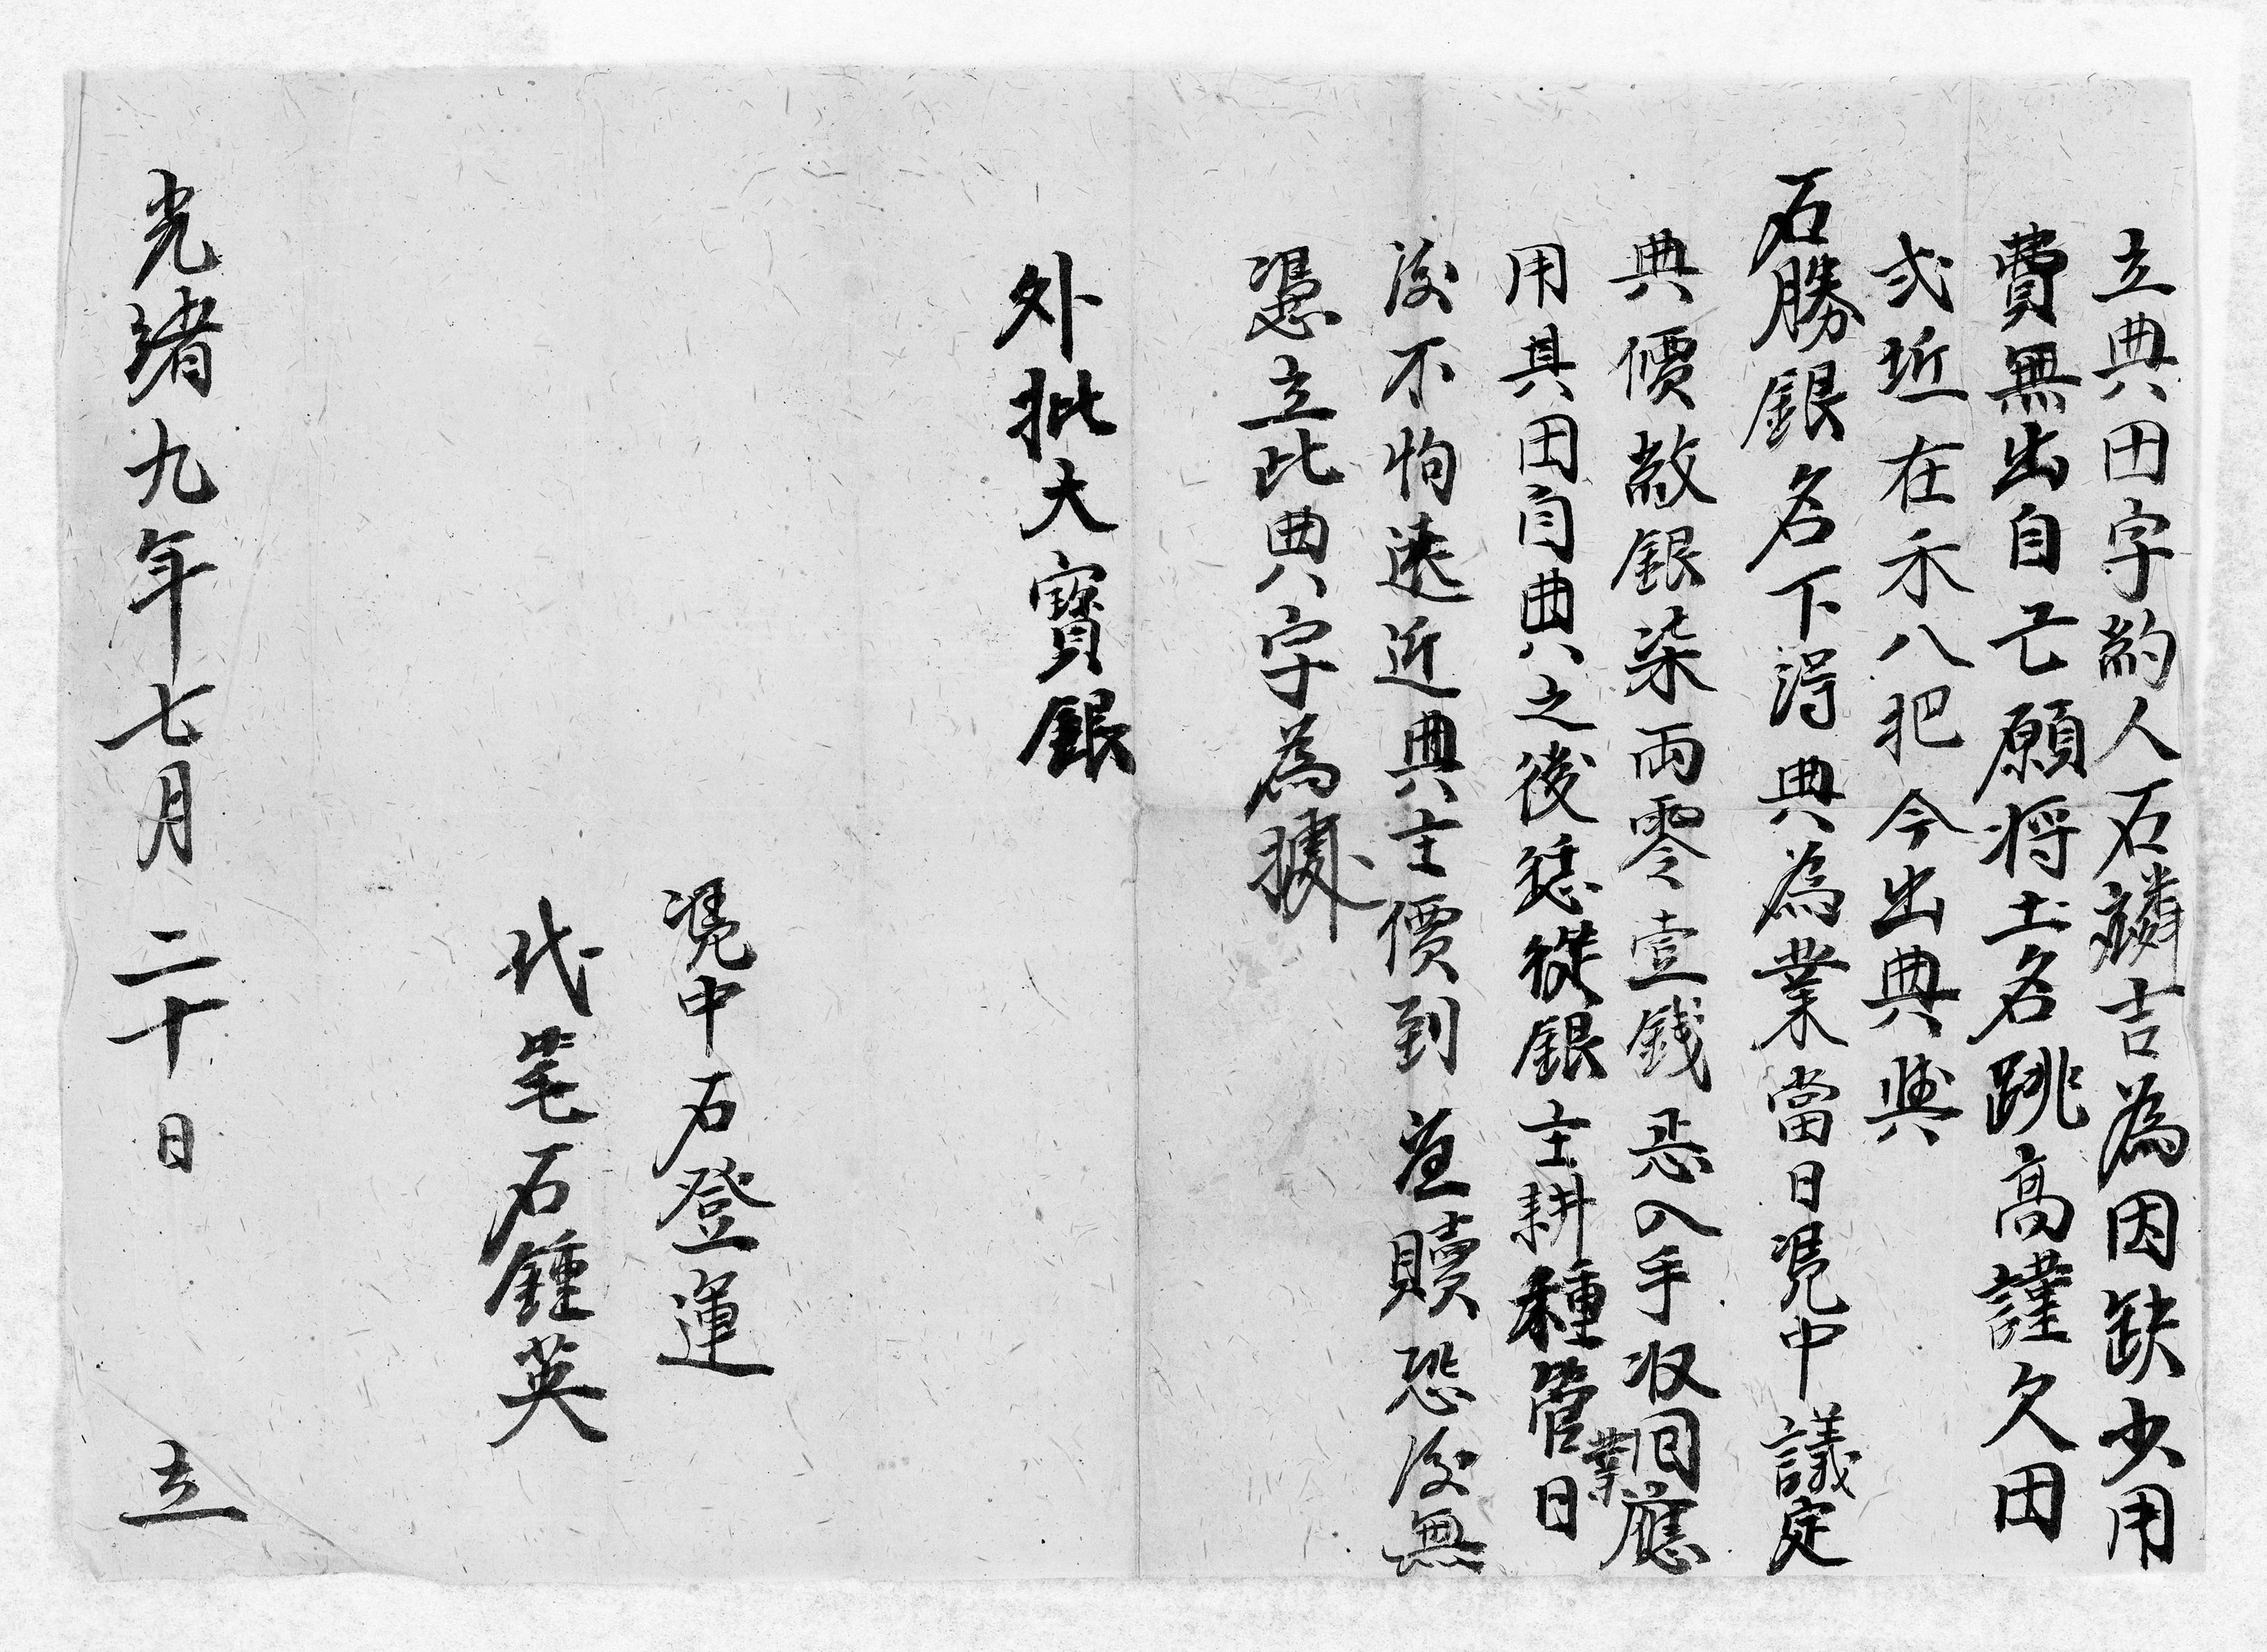 立典田字約人石麟吉為因缺少用
費無出自己願将土名跳高謹欠田
弍坵在禾八把今出典與
石勝銀名下淂典為業當日凴中議定
典價敖銀柒兩零壹錢悉入手収囬應
用其田自典之後恁從銀主耕種管業日
後不拘遠近典主價到並贖恐後無
憑立此典字為據
外批大寳銀
凴中石登運
代筆石鍾英
光緒九年七月二十日 立